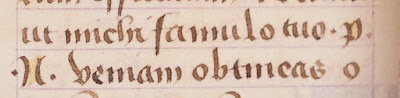 ut michi famulo tuo. p.
.N. veniam obtineas o